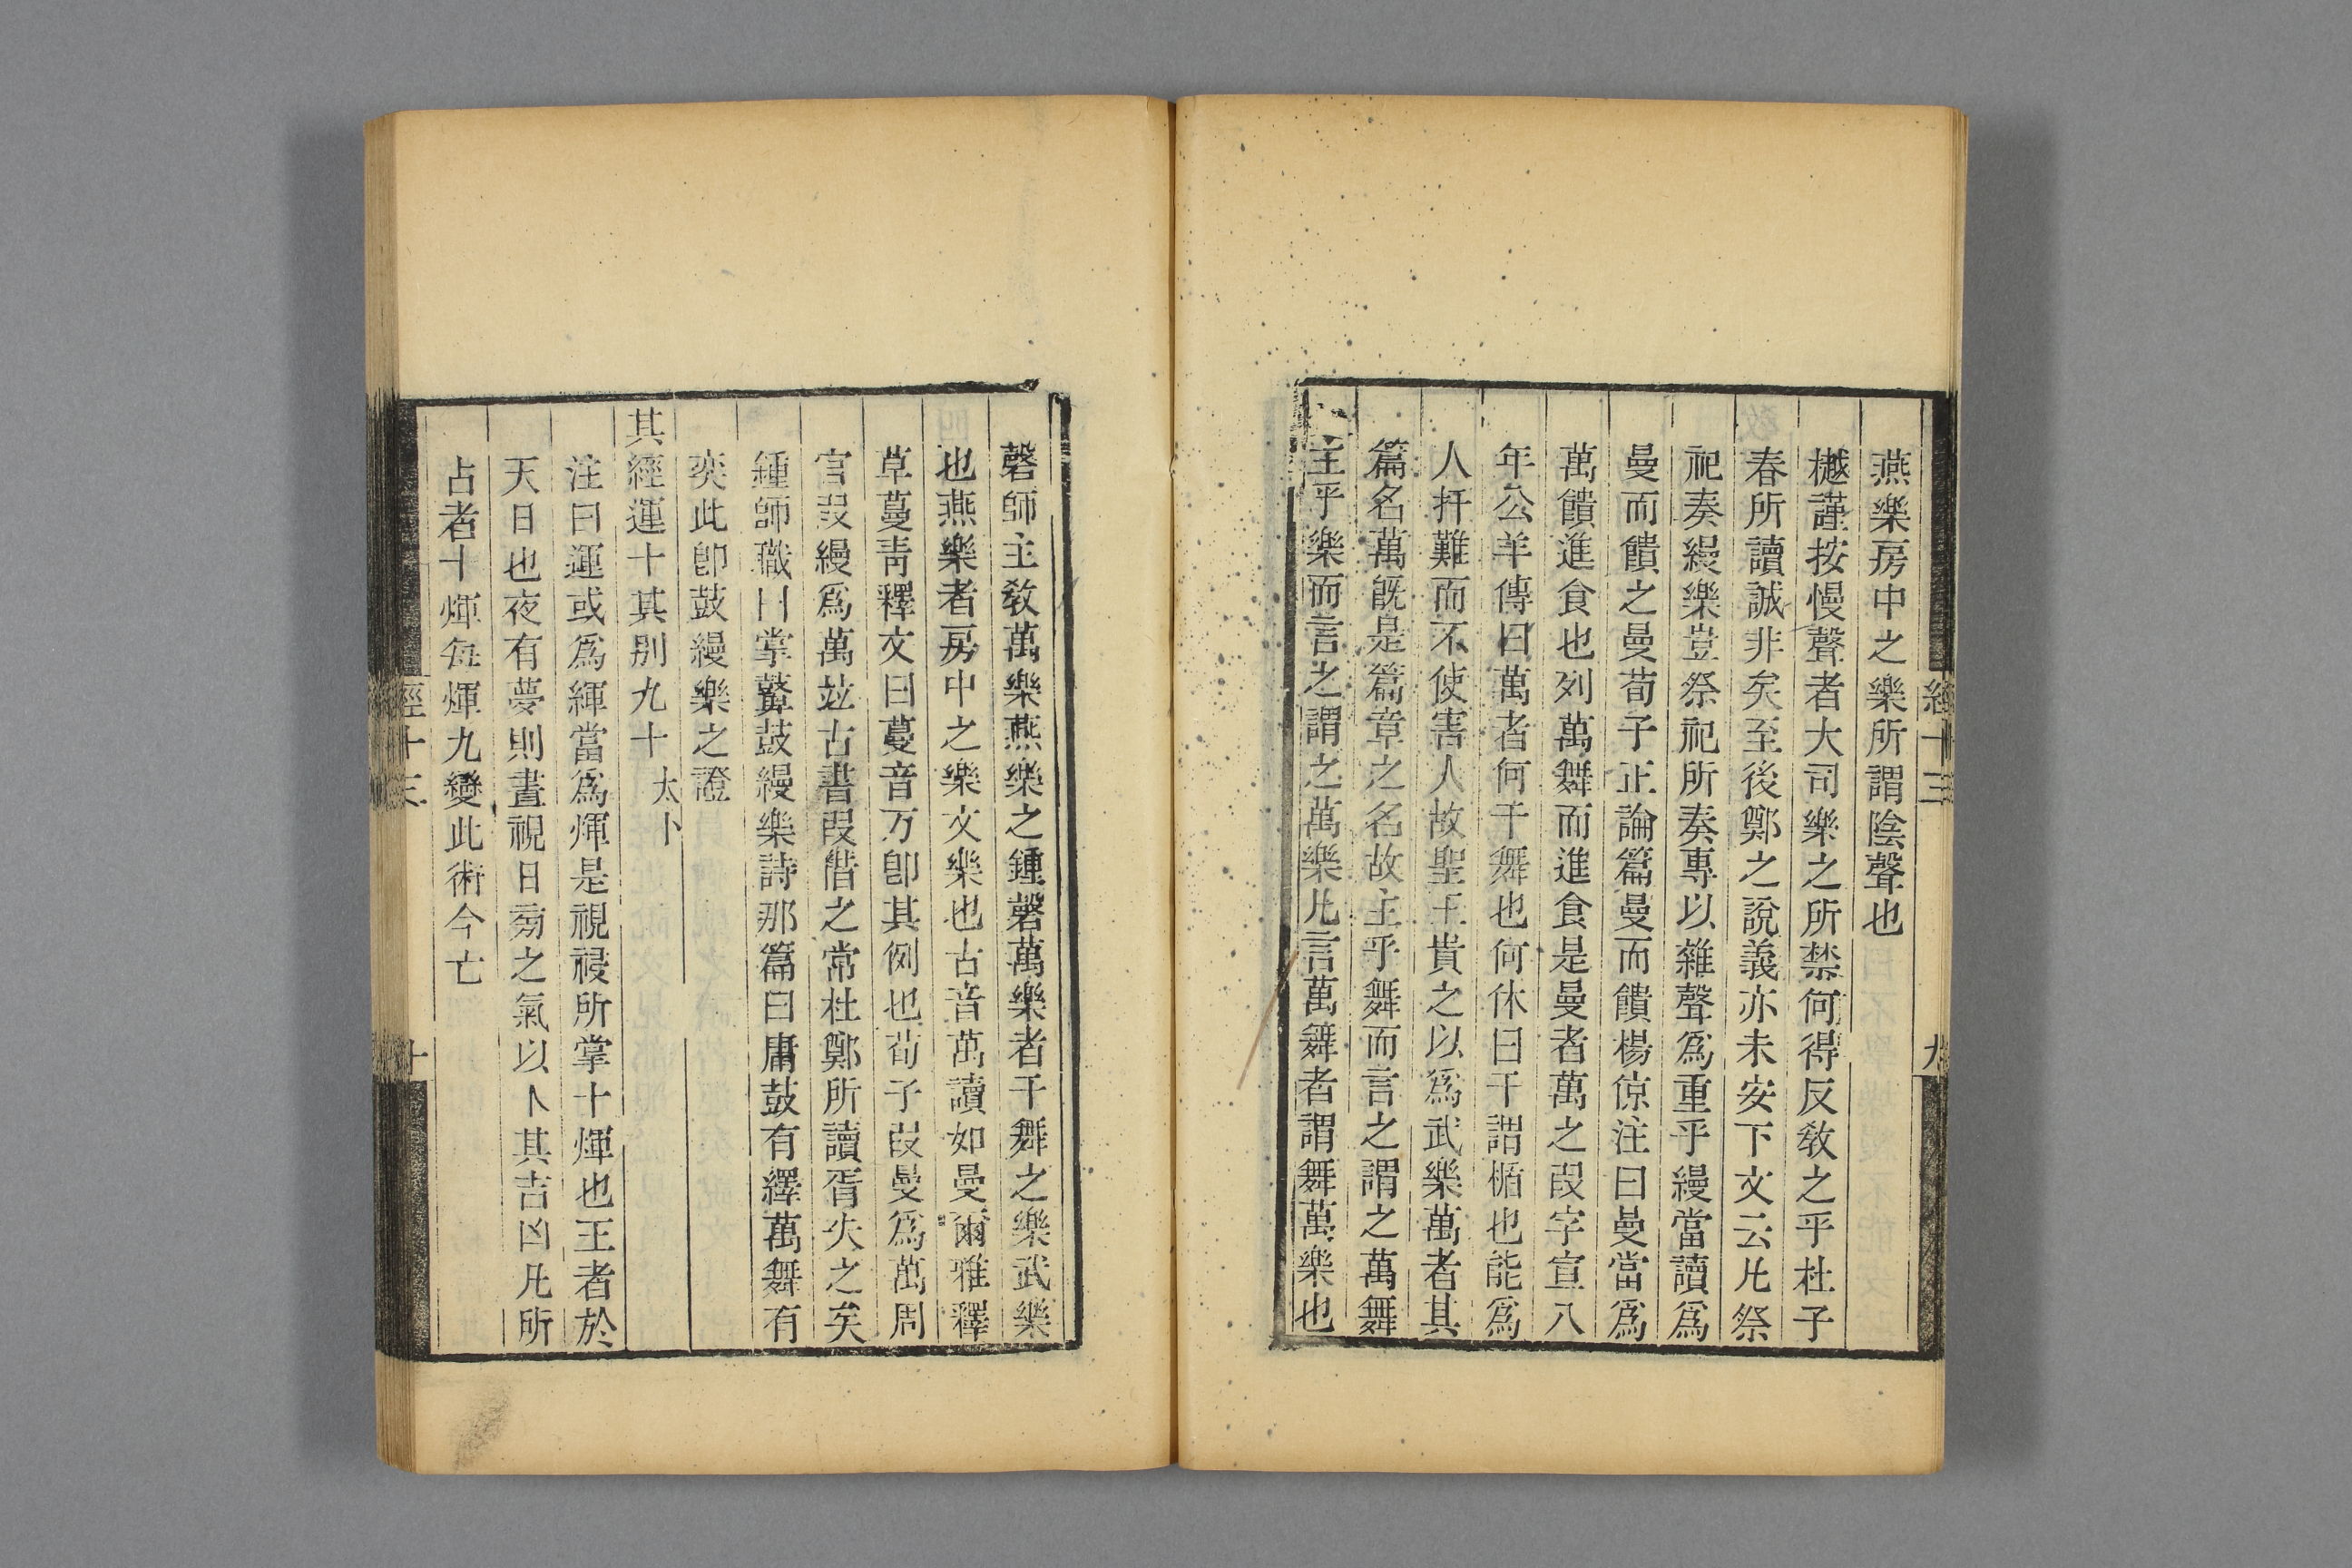 燕樂房中之樂所謂陰聲也
樾謹按慢聲者大司樂之所禁何得反敎之乎杜子
春所讀誠非矣至後鄭之說義亦未安下文云凡祭
祀奏縵樂豈祭祀所奏專以雜聲爲重乎縵當讀爲
曼而饋之曼荀子正論篇曼而饋楊倞注曰曼當爲
萬饋進食也列萬舞而進食是曼者萬之叚字宣八
年公羊傳曰萬者何干舞也何休曰干謂楯也能爲
人扞難而不使害人故聖王貴之以爲武樂萬者其
篇名萬旣是篇章之名故主乎舞而言之謂之萬舞
主乎樂而言之謂之萬樂凡言萬舞者謂舞萬樂也
經十三
九
磬師主敎萬樂燕樂之鍾磬萬樂者干舞之樂武樂
也燕樂者房中之樂文樂也古音萬讀如曼爾雅釋
草蔓菁釋文曰蔓音万卽其例也荀子叚曼爲萬周
官叚縵爲萬竝古書叚借之常杜鄭所讀胥失之矣
鍾師職曰掌鼙鼓縵樂詩那篇曰庸鼓有繹萬舞有
奕此卽鼓縵樂之證
其經運十其別九十 太卜
注曰運或爲緷當爲煇是視祲所掌十煇也王者於
天日也夜有夢則晝視日旁之氣以卜其吉凶凡所
占者十煇每煇九變此術今亡
經十三
十